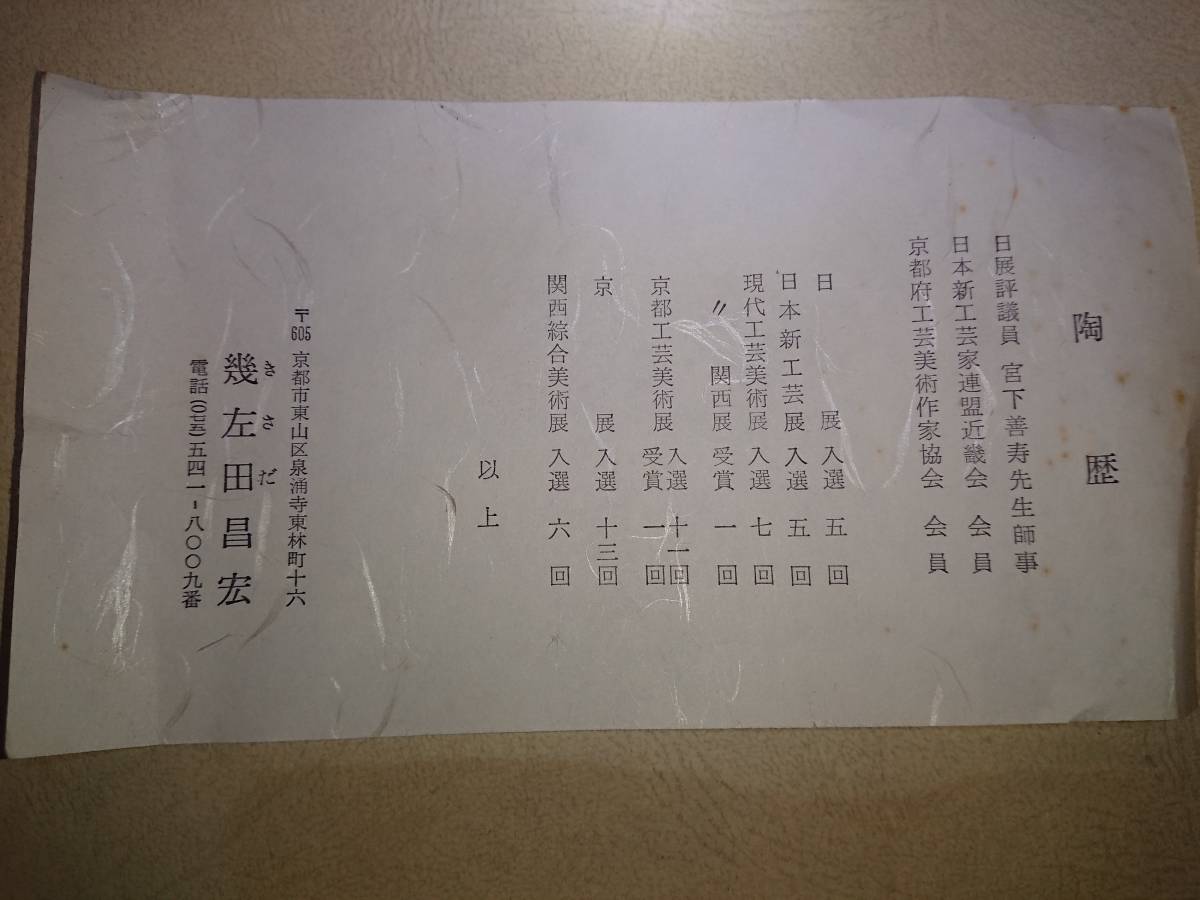 陶歴
日展評議員 宮下善寿先生師事
日本新工芸家連盟近畿会 会員
京都府工芸美術作家協会 会員
日展 入選 五回
日本新工芸展 入選 五回
現代工芸美術展 入選 七回
〃 関西展 受賞 一回
京都工芸美術展 入選 十一回
受賞 一回
京展 入選 十三回
関西綜合美術展 入選 六回
以上
〒605 京都市東山区泉涌寺東林町十六
幾左田昌宏
きさだ
電話(〇七五)五四一-八〇〇九番